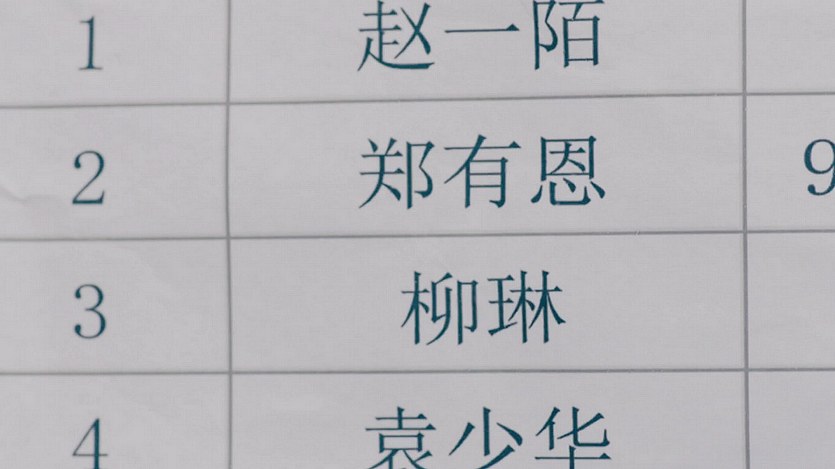 1 赵一陌
2 郑有恩 9
3 柳琳
4 袁少华